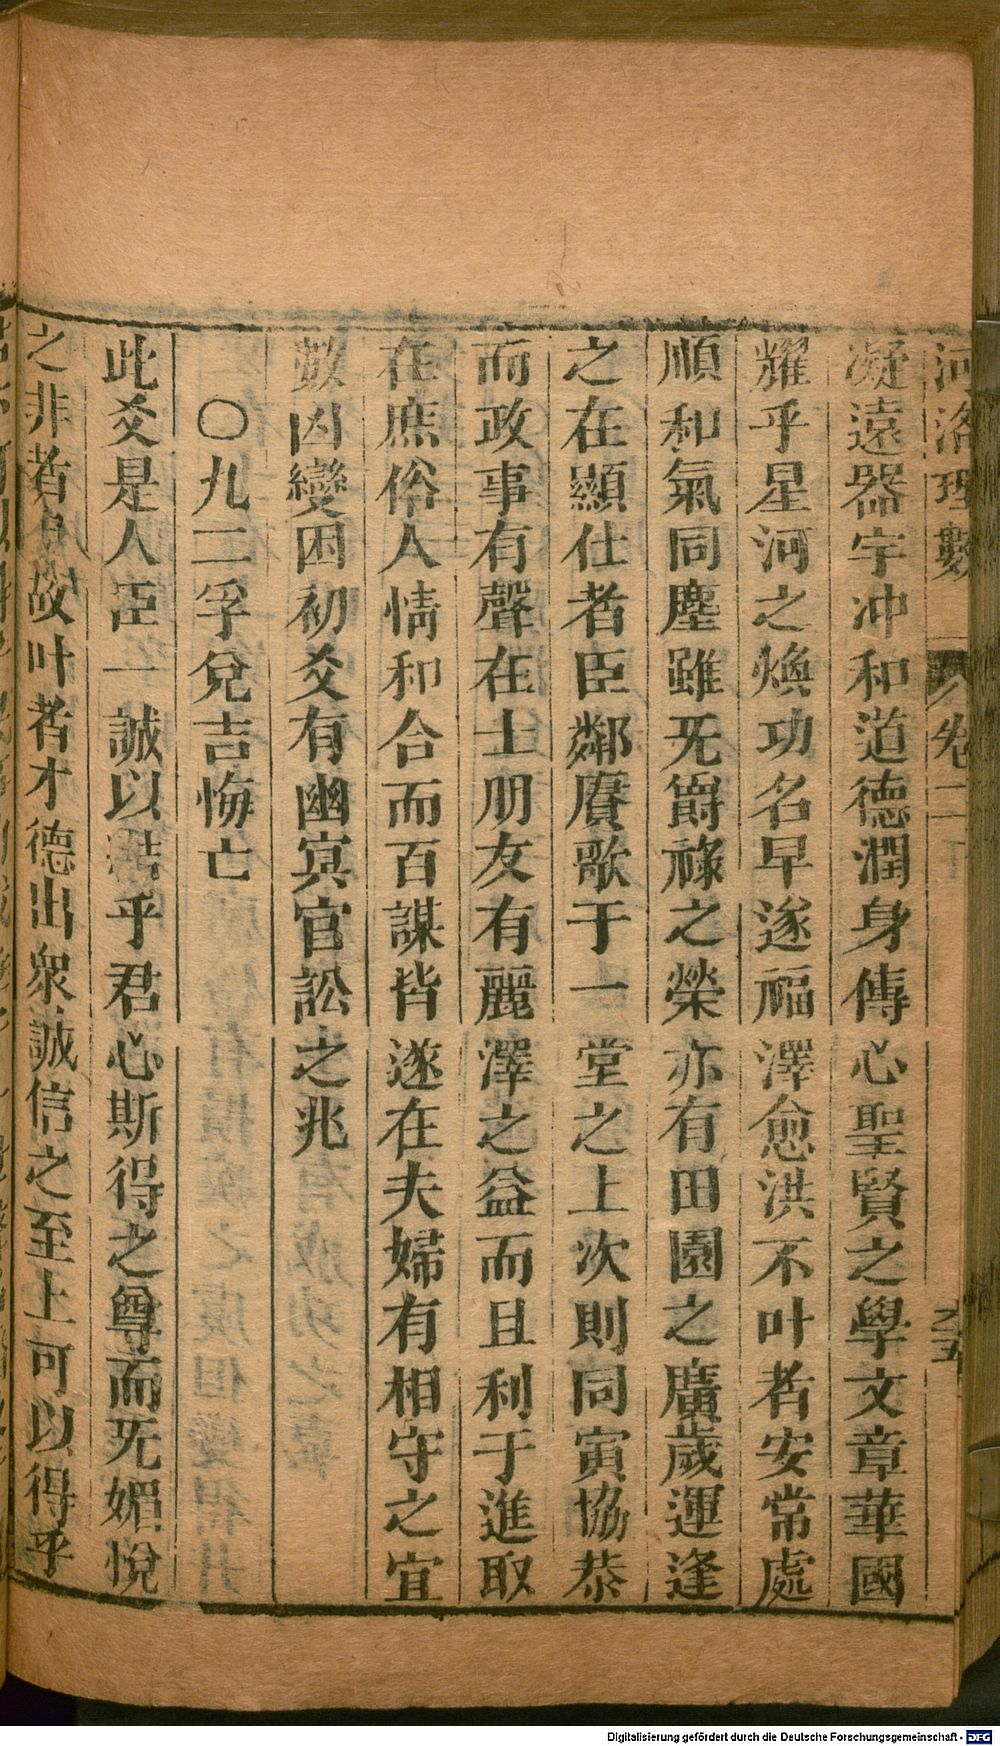 河洛理數 卷二
凝遠器宇冲和道德潤身傳心聖賢之學文章華國
耀乎星河之煥功名早遂福澤愈洪不叶者安常處
順和氣同塵雖旡爵祿之榮亦有田園之廣歲運逢
之在顯仕者臣鄰賡歌于一堂之上次則同寅協恭
而政事有聲在士朋友有麗澤之益而且利于進取
在庶俗人情和合而百謀皆遂在夫婦有相守之宜
數凶變困初爻有幽冥官訟之兆
〇九二孚兌吉悔亡
此爻是人臣一誠以結乎君心斯得之尊而旡媚悅
之非者也故叶者才德出衆誠信之至上可以得乎
Digitalisierung gefördert durch die Deutsche Forschungsgemeinschaft - DFG